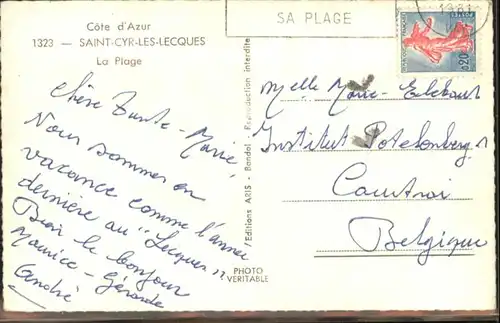 Côte d'Azur
1323 — SAINT-CYR-LES-LECQUES
La Plage
SA PLAGE
1961
0,20
Chère Tante-Marie,
Nous sommes en
vacance comme l'année
dernière au "Lecques".
Bien le bonjour
Maurice - Gérarde
André
Editions ARIS - Bandol - Reproduction interdite
PHOTO
VERITABLE
Melle Marie
Institut
Courtrai
Belgique